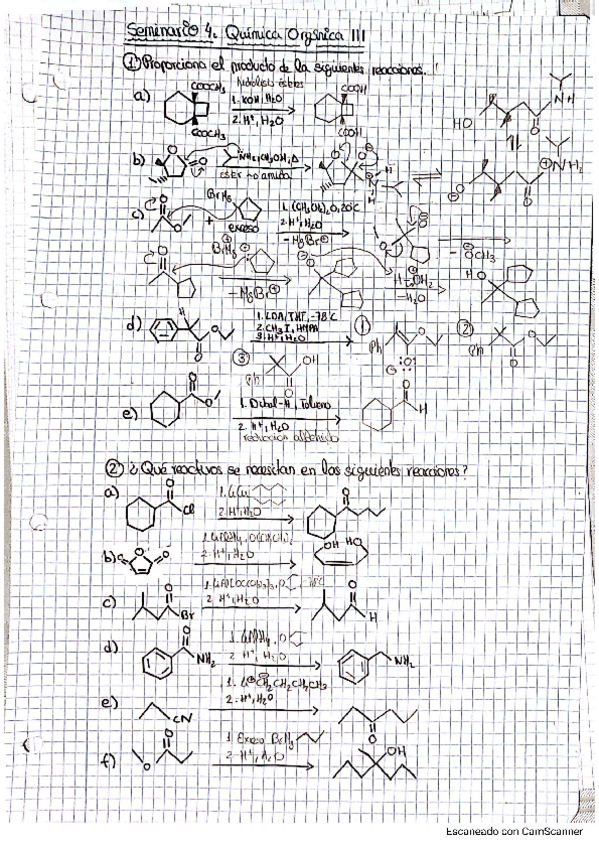 Seminario 4. Química Orgánica III
① Proporciona el producto de las siguientes reacciones.
a) COOCH₃ COOCH₃ 1. KOH, H₂O 2. H⁺, H₂O COOH COOH
HO O NH
b) O O NH₂, CH₃OH, Δ
c) O O + BrMg exceso 1. (CH₃CH₂)₂O, 20°C 2. H⁺, H₂O
- MgBr⊕ - OCH₃
BrMg - MgBr⊕ H-OH₂ - H₂O HO
d) O O 1. LDA, THF, -78°C 2. CH₃I, HMPA 3. H⁺, H₂O ① Ph O O ② Ph O O
③ Ph OH O
e) O O 1. Dibal-H, Tolueno 2. H⁺, H₂O O H
reducción aldehído
② ¿Qué reactivos se necesitan en las siguientes reacciones?
a) O Cl 2. H⁺, H₂O O
b) O O O 2. H⁺, H₂O OH HO
c) O Br 2. H⁺, H₂O O H
d) O NH₂ 2. H⁺, H₂O NH₂
e) CN 1. Li CH₂CH₂CH₂CH₃ 2. H⁺, H₂O O
f) O O 1. Exceso BrMg 2. H⁺, H₂O OH
Escaneado con CamScanner